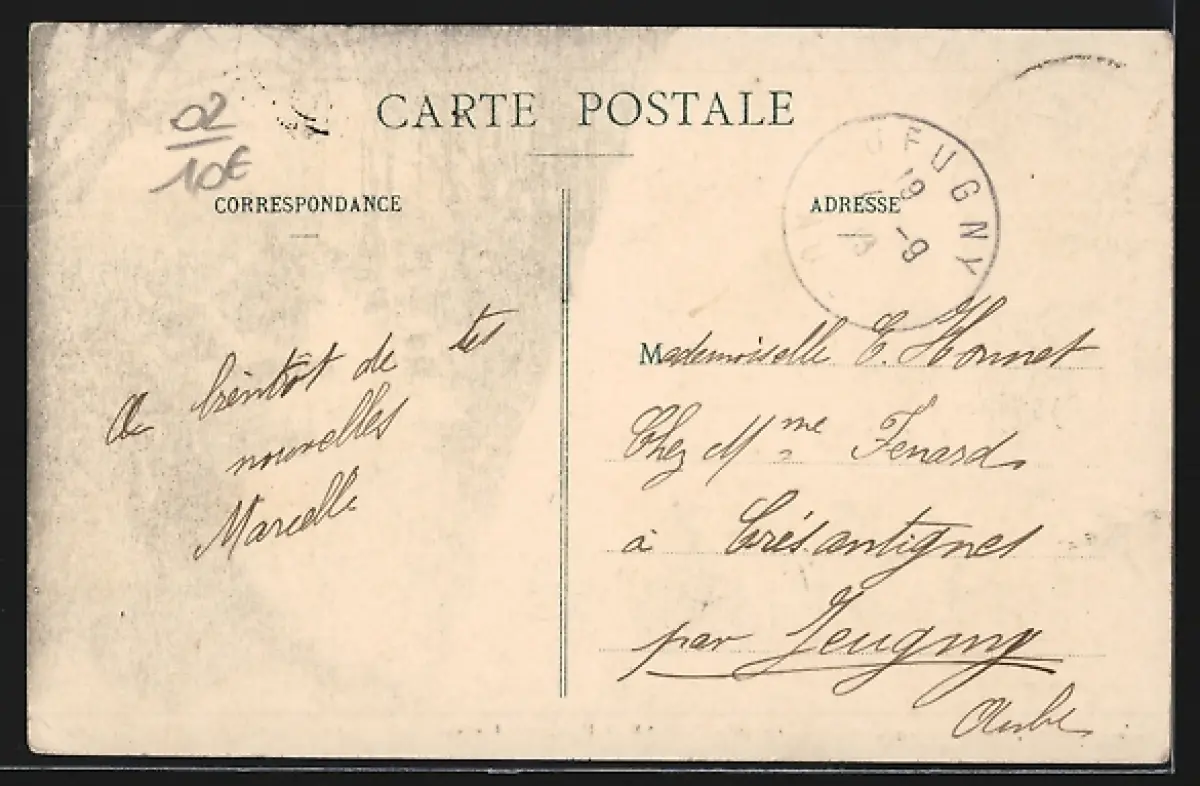 CARTE POSTALE
02
10€
CORRESPONDANCE
A bientôt de tes
nouvelles
Marcelle
ADRESSE
EUGNY
19 -9
Mademoiselle E. Honnet
Chez Mme Fenard
à Crésantignes
par Jeugny
Aube